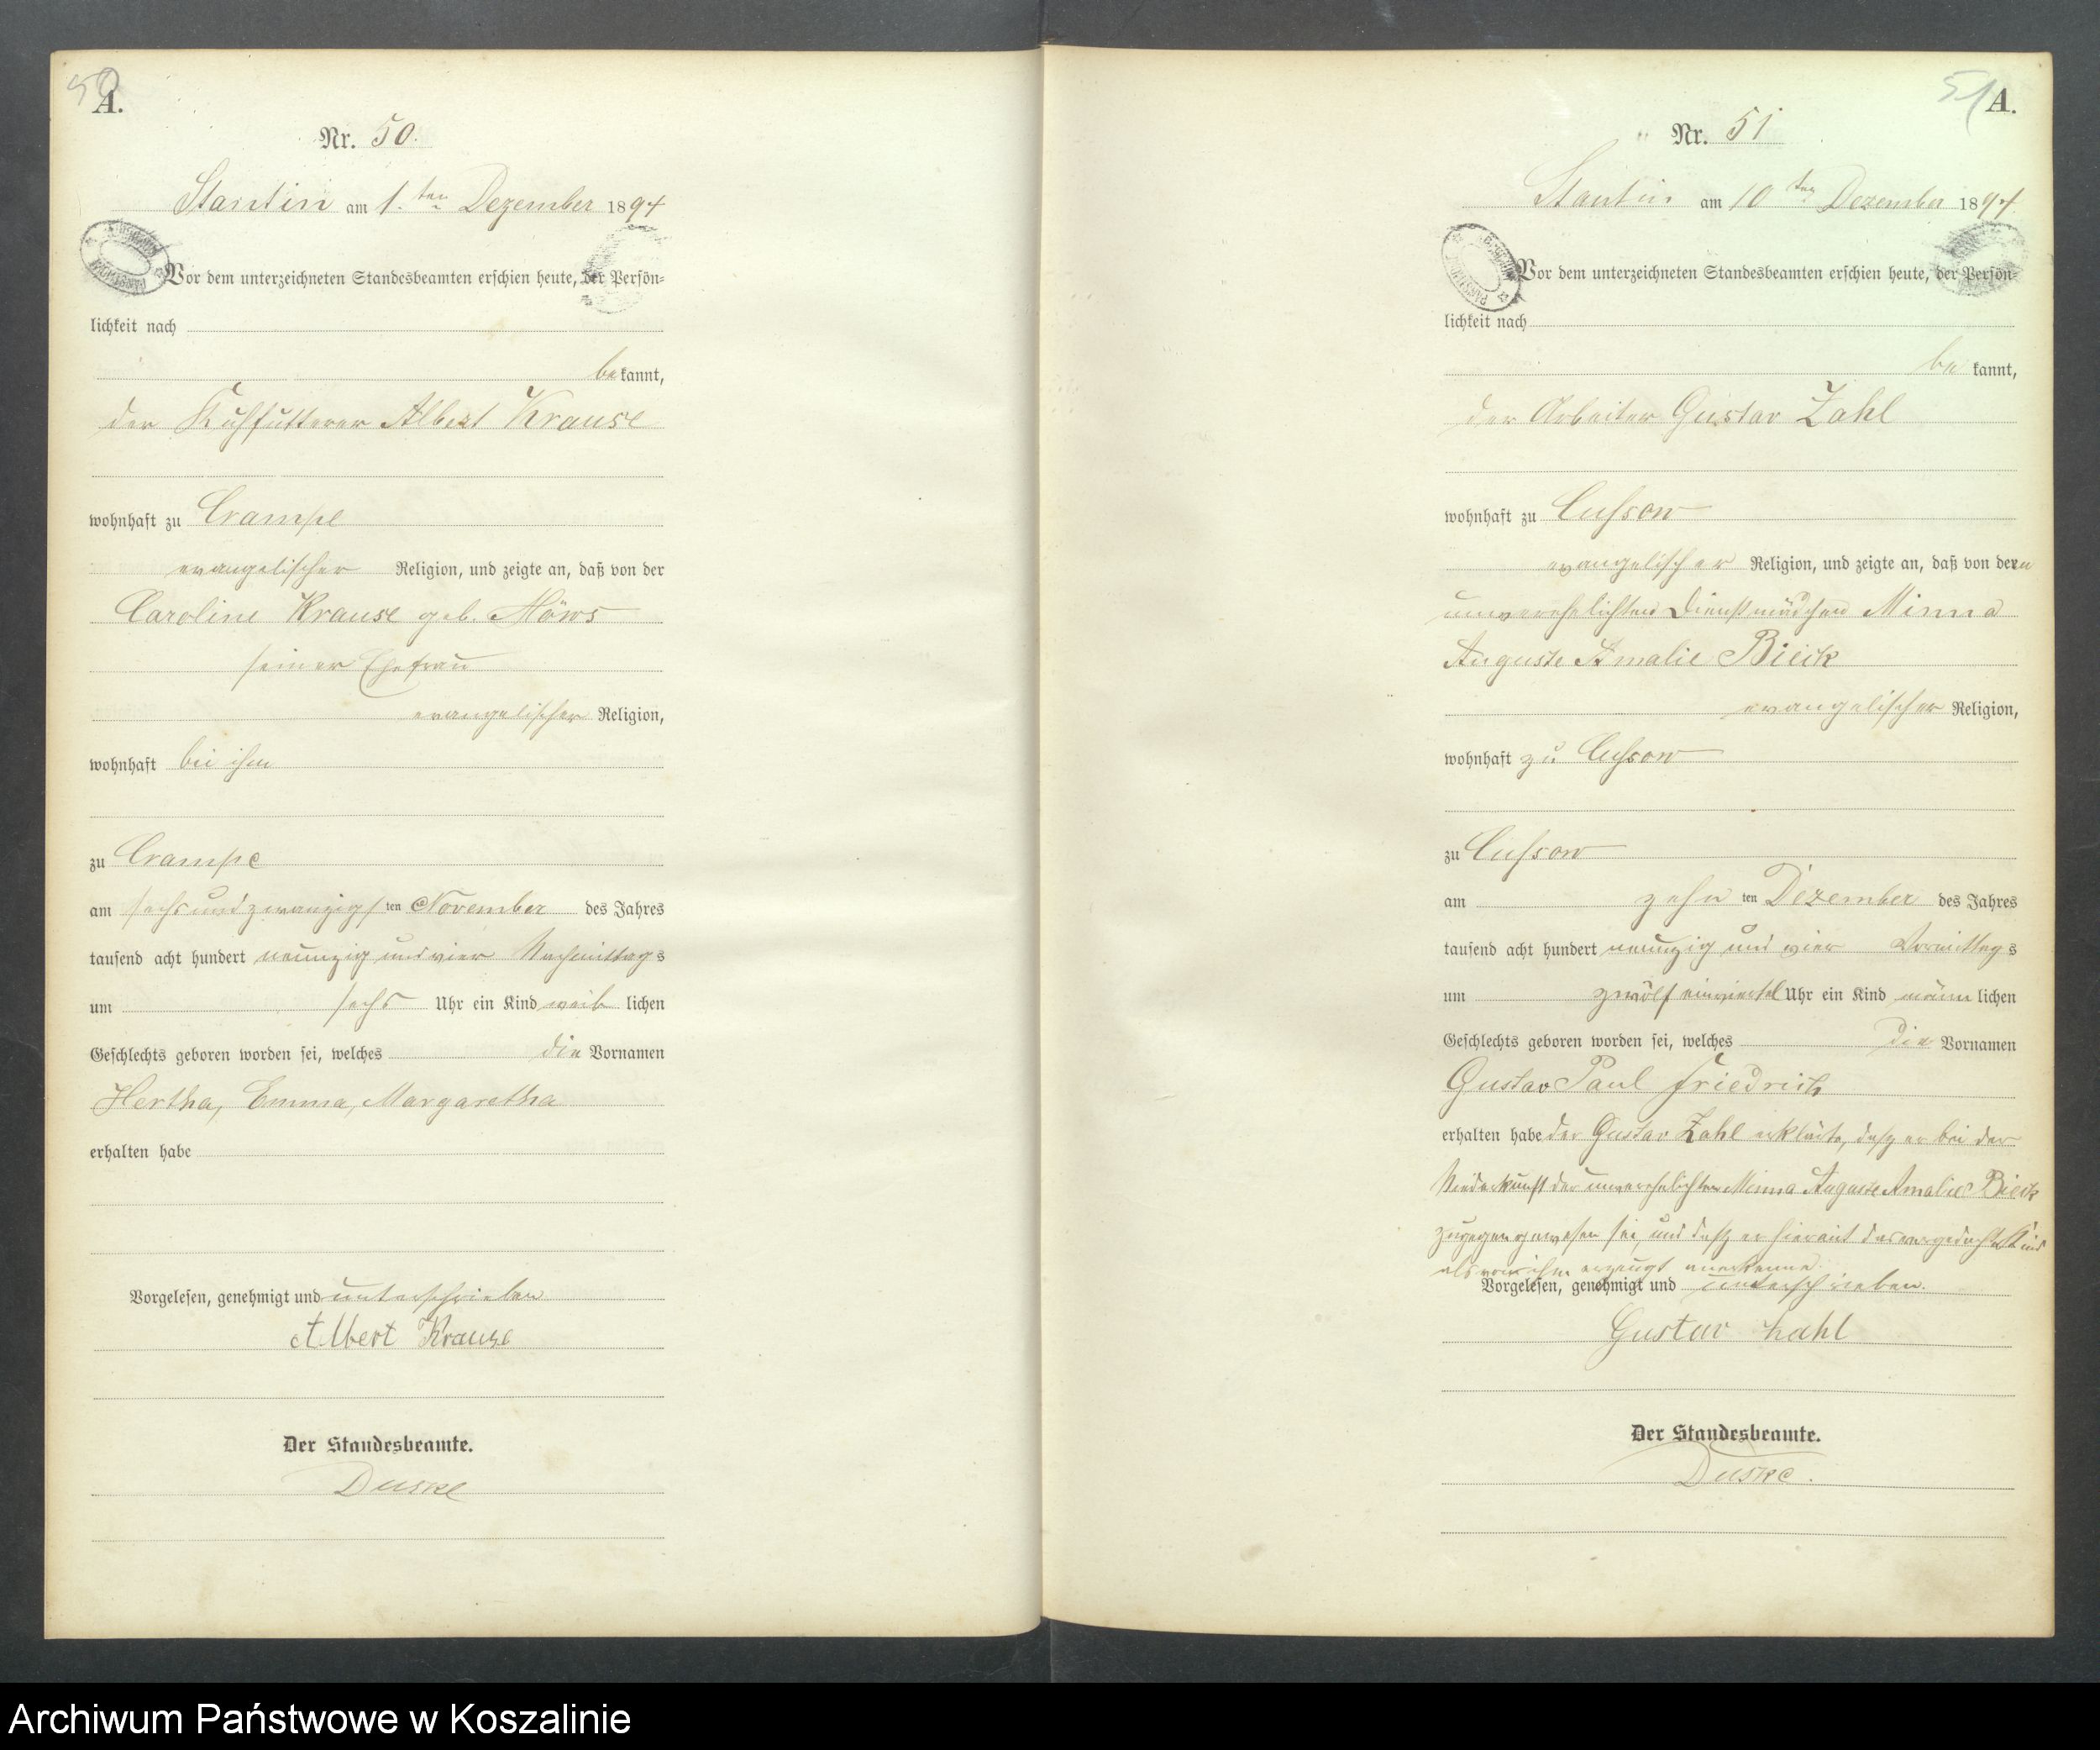 50
A.
Nr. 50.
Stantin am 1. ten Dezember 1894
Vor dem unterzeichneten Standesbeamten erschien heute, der Persön-
lichkeit nach
bekannt,
der Kuhfutterer Albert Krause
wohnhaft zu Crampe
evangelischer Religion, und zeigte an, daß von der
Caroline Krause geb. Möws
seiner Ehefrau
evangelischer Religion,
wohnhaft bei ihm
zu Crampe
am sechsundzwanzigsten November des Jahres
tausend acht hundert neunzig und vier Nachmittags
um sechs Uhr ein Kind weiblichen
Geschlechts geboren worden sei, welches die Vornamen
Hertha, Emma, Margaretha
erhalten habe
Vorgelesen, genehmigt und unterschrieben
Albert Krause
Der Standesbeamte.
Duske
51
A.
Nr. 51
Stantin am 10 ten Dezember 1894
Vor dem unterzeichneten Standesbeamten erschien heute, der Persön-
lichkeit nach
bekannt,
der Arbeiter Gustav Zahl
wohnhaft zu Cussow
evangelischer Religion, und zeigte an, daß von der
unverehelichten Dienstmädchen Minna
Auguste Amalie Bieck
evangelischer Religion,
wohnhaft zu Cussow
zu Cussow
am zehnten Dezember des Jahres
tausend acht hundert neunzig und vier Vormittags
um zwölf einviertel Uhr ein Kind männlichen
Geschlechts geboren worden sei, welches die Vornamen
Gustav Paul Friedrich
erhalten habe der Gustav Zahl erklärte, daß er bei der
Niederkunft der unverehelichten Minna Auguste Amalie Bieck
zugegen gewesen sei, und daß er hiermit das vorgedachte Kind
als von ihm erzeugt anerkenne.
Vorgelesen, genehmigt und unterschrieben.
Gustav Zahl
Der Standesbeamte.
Duske.
Archiwum Państwowe w Koszalinie